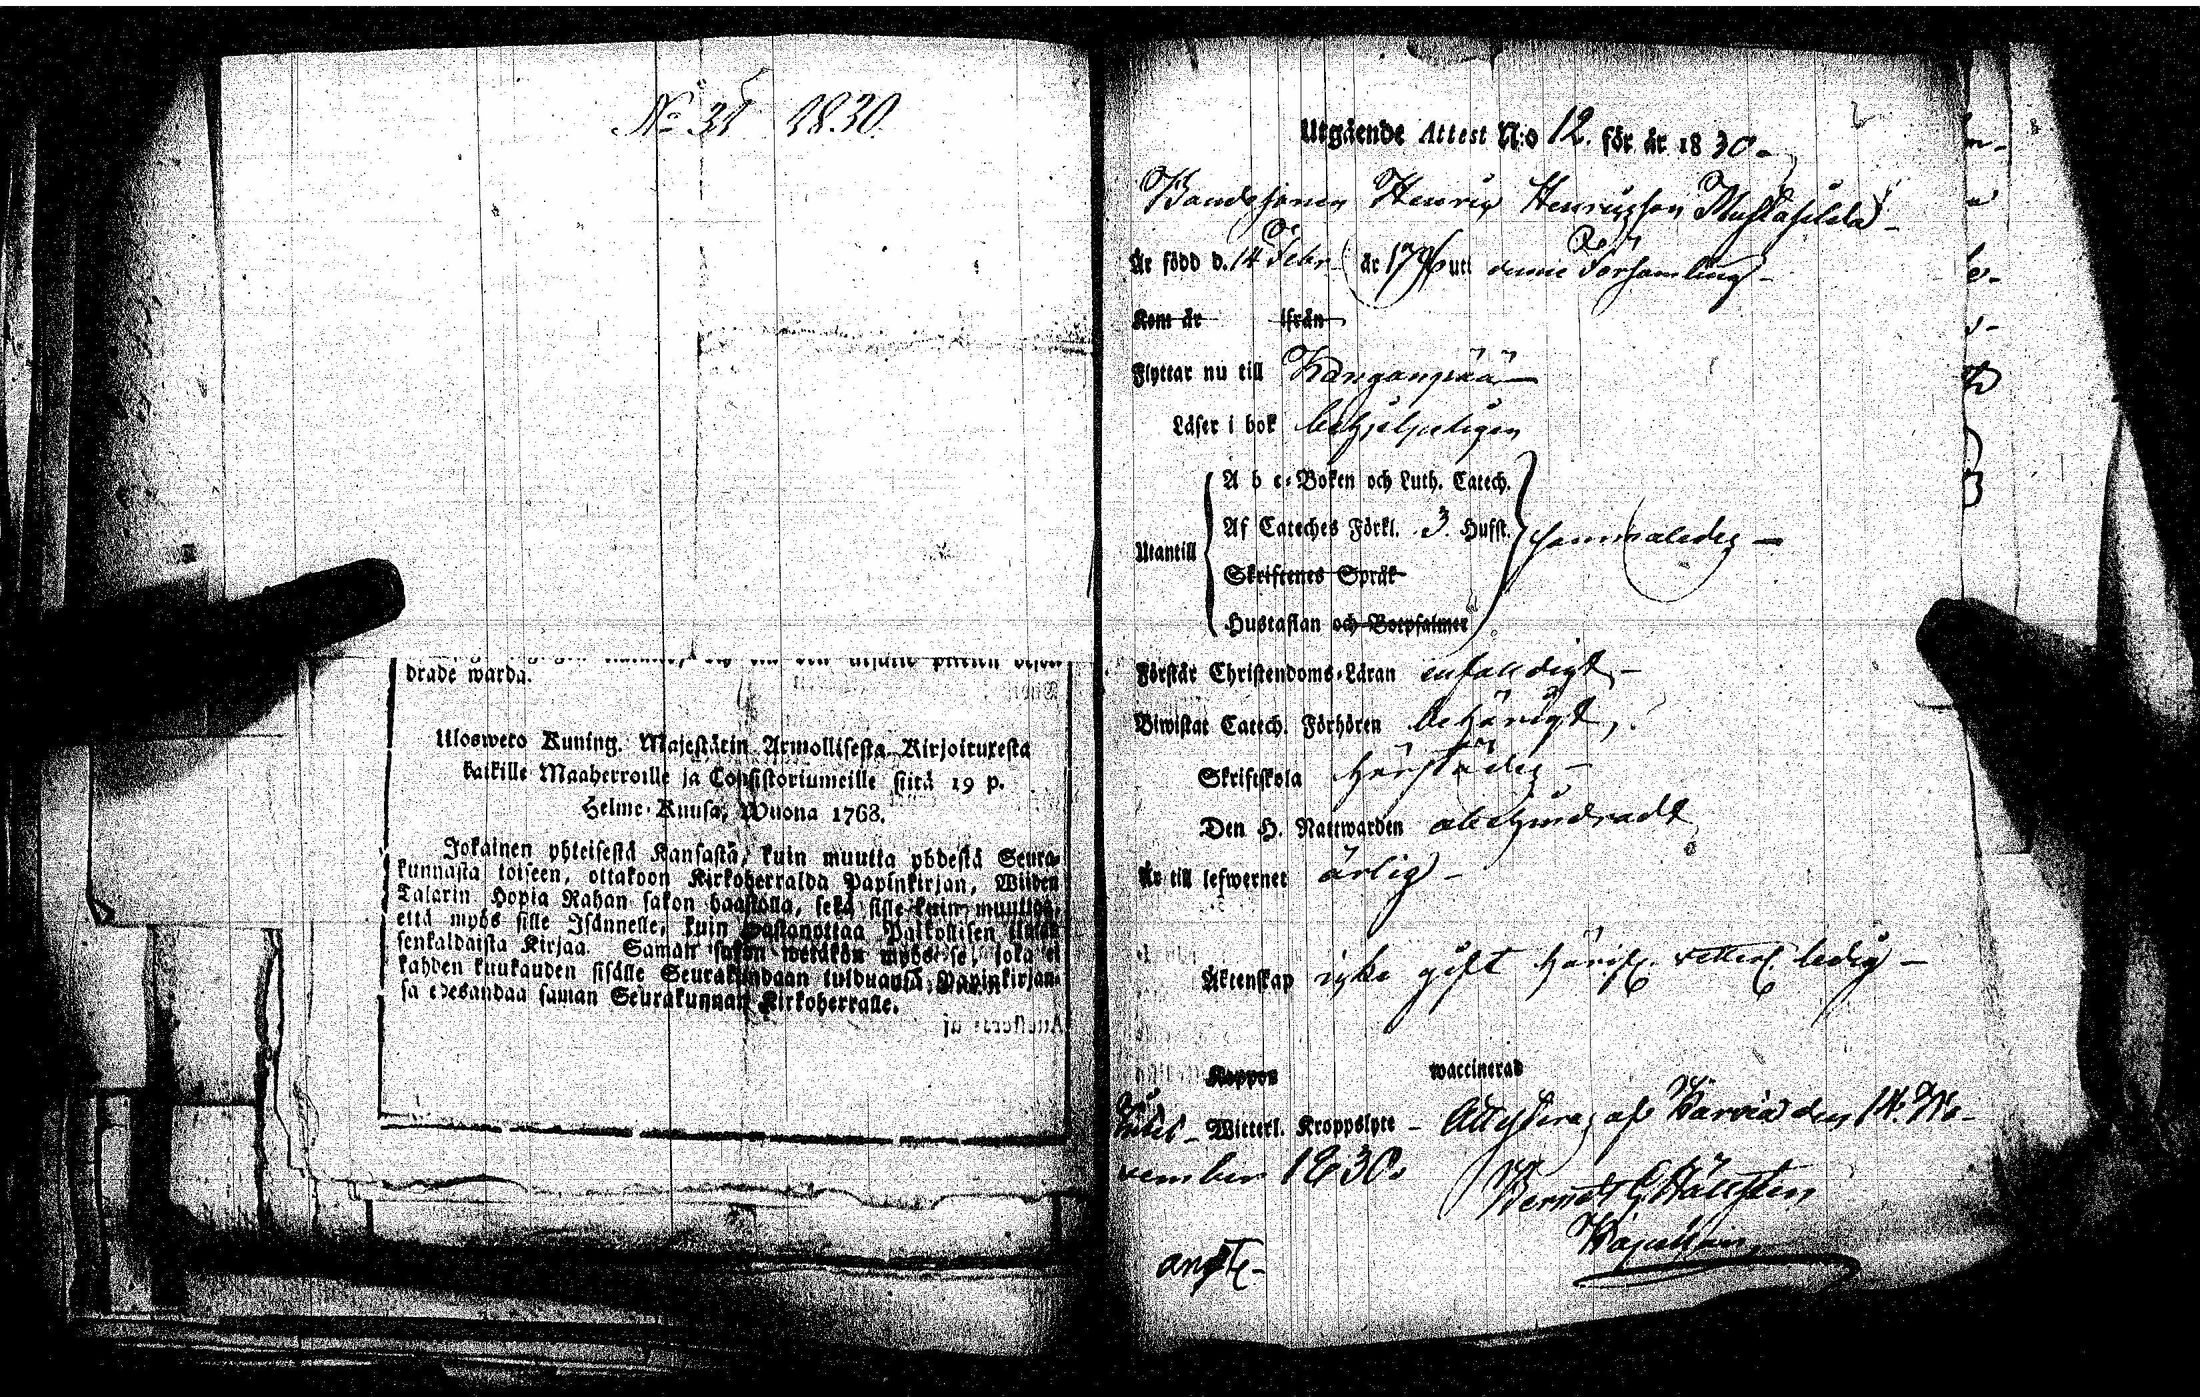 No 31 1830.
drade warda.
Uloswero Kuning. Majestätin Armollisesta Kirjoituxesta
kaikille Maaherroille ja Consistoriumeille siitä 19 p.
Helme-Kuusa, Wuona 1763.
Jokainen yhteisestä Kansasta, kuin muutta yhdestä Seura-
kunnasta toiseen, ottakoon Kirkoherralda Papinkirjan, Wiiden
Talarin Hopia Rahan sakon haastolla, sekä sille kuin muuttaa,
että myös sille Isännelle, kuin wastanottaa Palkollisen ilman
senkaldaista Kirjaa. Saman sakon wetäkön myös se, joka ei
kahden kuukauden sisälle Seurakundaan tulduansa, Papinkirjan-
sa edesandaa saman Seurakunnan Kirkoherralle.
Utgående Attest N:o 12. för år 1830.
Bondesonen Henrix Henrixson
Är född d. 14 Febr. år 17 uti denne Församling
Kom år ifrån
Flyttar nu till Kanganpää
Läser i bok behjelpeligen
Utantill
A b c-Boken och Luth. Catech.
Af Cateches Förkl. 3. Hufst.
sammaledes
Skriftenes Språk
Hustaflan och Botpsalmer
Förstår Christendoms-Läran enfaldigt
Biwistat Catech. Förhören behörigt,
Skriftskola härstädes
Den H. Nattwarden obehindradt
Är till lefwernet ärlig
Äktenskap icke gift ledig
Koppor waccinerad
Witterl. Kroppslyte - Attesteras af Karvia den 14. No-
vember 1830.
Kapellan